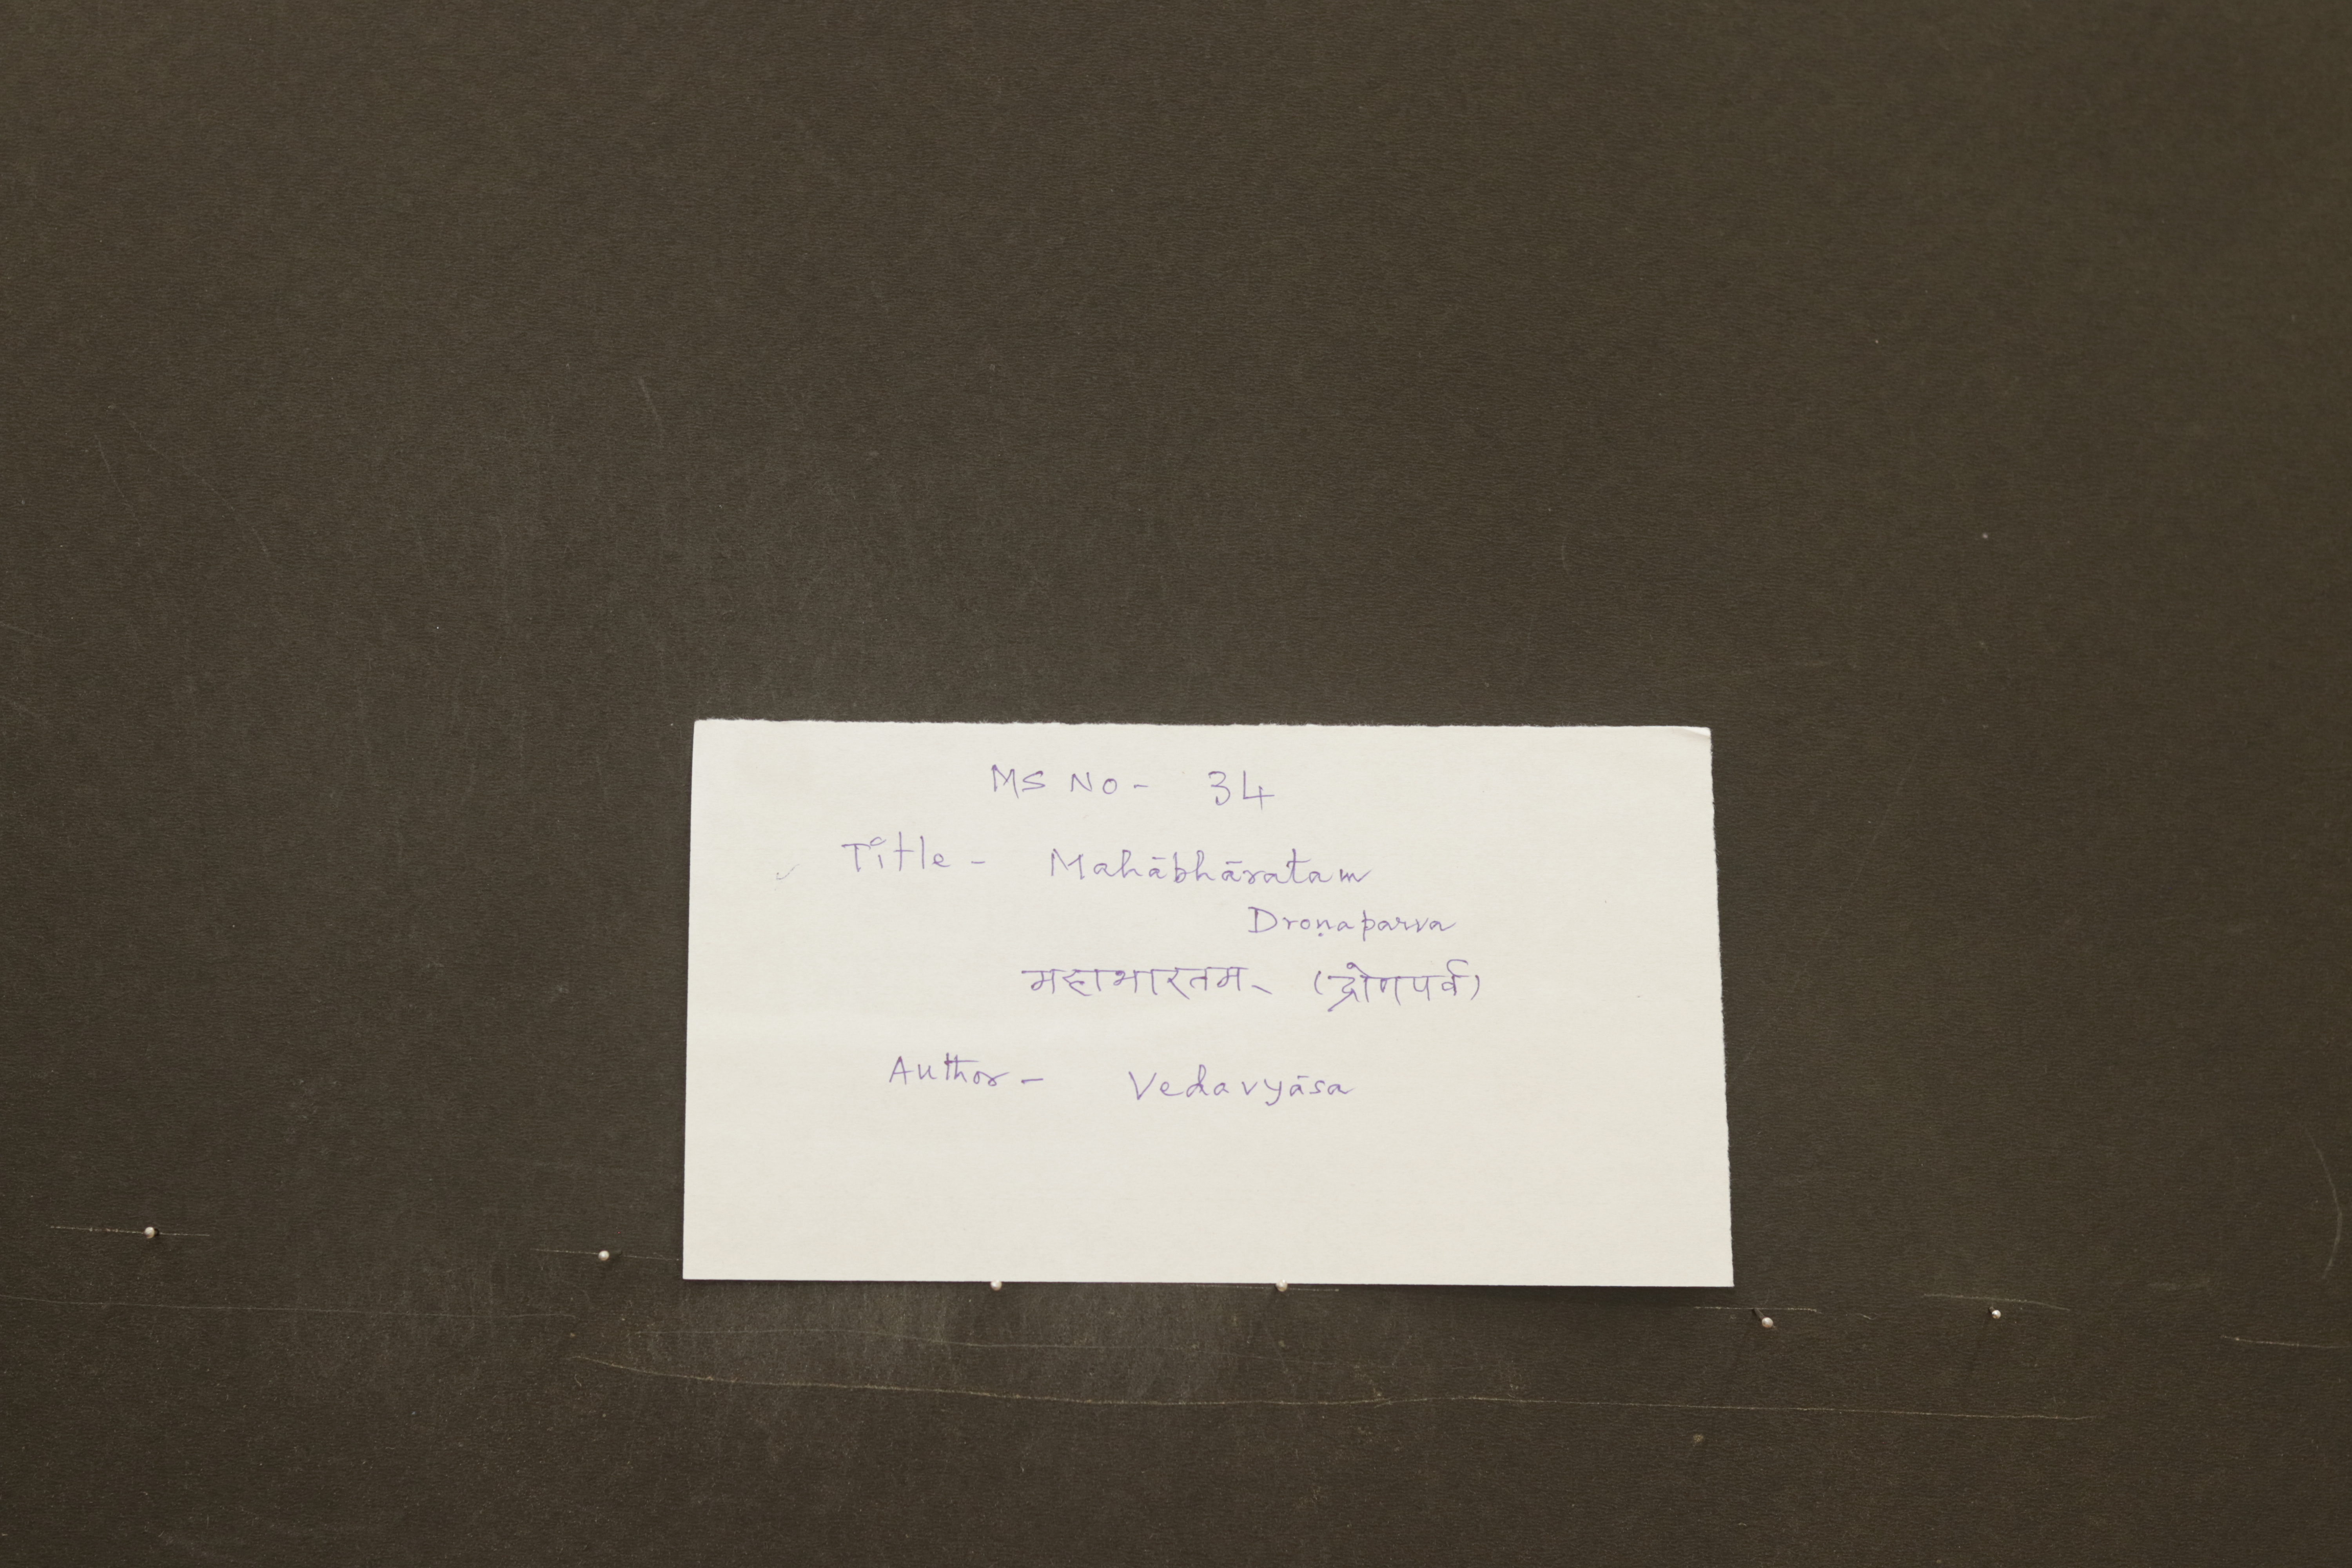 MS NO - 34
Title - Mahābhāratam
Droṇaparva
महाभारतम् (द्रोणपर्व)
Author - Vedavyāsa